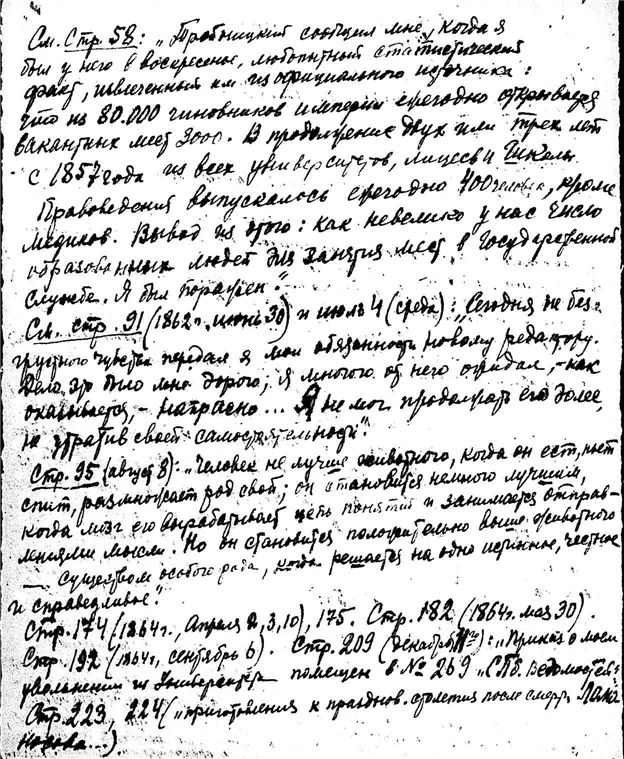 См. Стр. 58: „Требоницкий сообщил мне, когда я
был у него в воскресенье, любопытный статистический
факт, извлеченный им из официального источника:
что из 80.000 чиновников империи ежегодно открывается
вакантных мест 3000. В продолжение двух или трех лет
с 1857 года из всех университетов, лицеев и Школы
Правоведения выпускалось ежегодно 400 человек, кроме
медиков. Вывод из этого: как невелико у нас число
образованных людей для занятия мест в Государственной
службе. Я был поражен."
См. стр. 91 (1862 г. июнь 30) и июль 4 (среда): „Сегодня не без
грустного чувства передал я мои обязанности новому редактору.
Дело это было мне дорого; я многого от него ожидал, - как
оказывается, - напрасно... Я не мог продолжать его долее,
не утратив своей самостоятельности".
Стр. 95 (август 8): „Человек не лучше животного, когда он ест, пьет
спит, размножает род свой; он становится немного лучшим,
когда мозг его вырабатывает цепь понятий и занимается отправ-
лениями мысли. Но он становится положительно выше животного
— существом особого рода, когда решается на одно истинное, честное
и справедливое".
Стр. 174 (1864 г., Апрель 2, 3, 10), 175. Стр. 182 (1864 г. мая 30).
Стр. 192 (1864 г, сентябрь 6). Стр. 209 (декабрь): „Приказ о моем
увольнении из Университета помещен в № 269 „СПб. Ведомостей".
Стр. 223, 224 („приготовления к празднов. столетия после смерти Ломо
носова...)